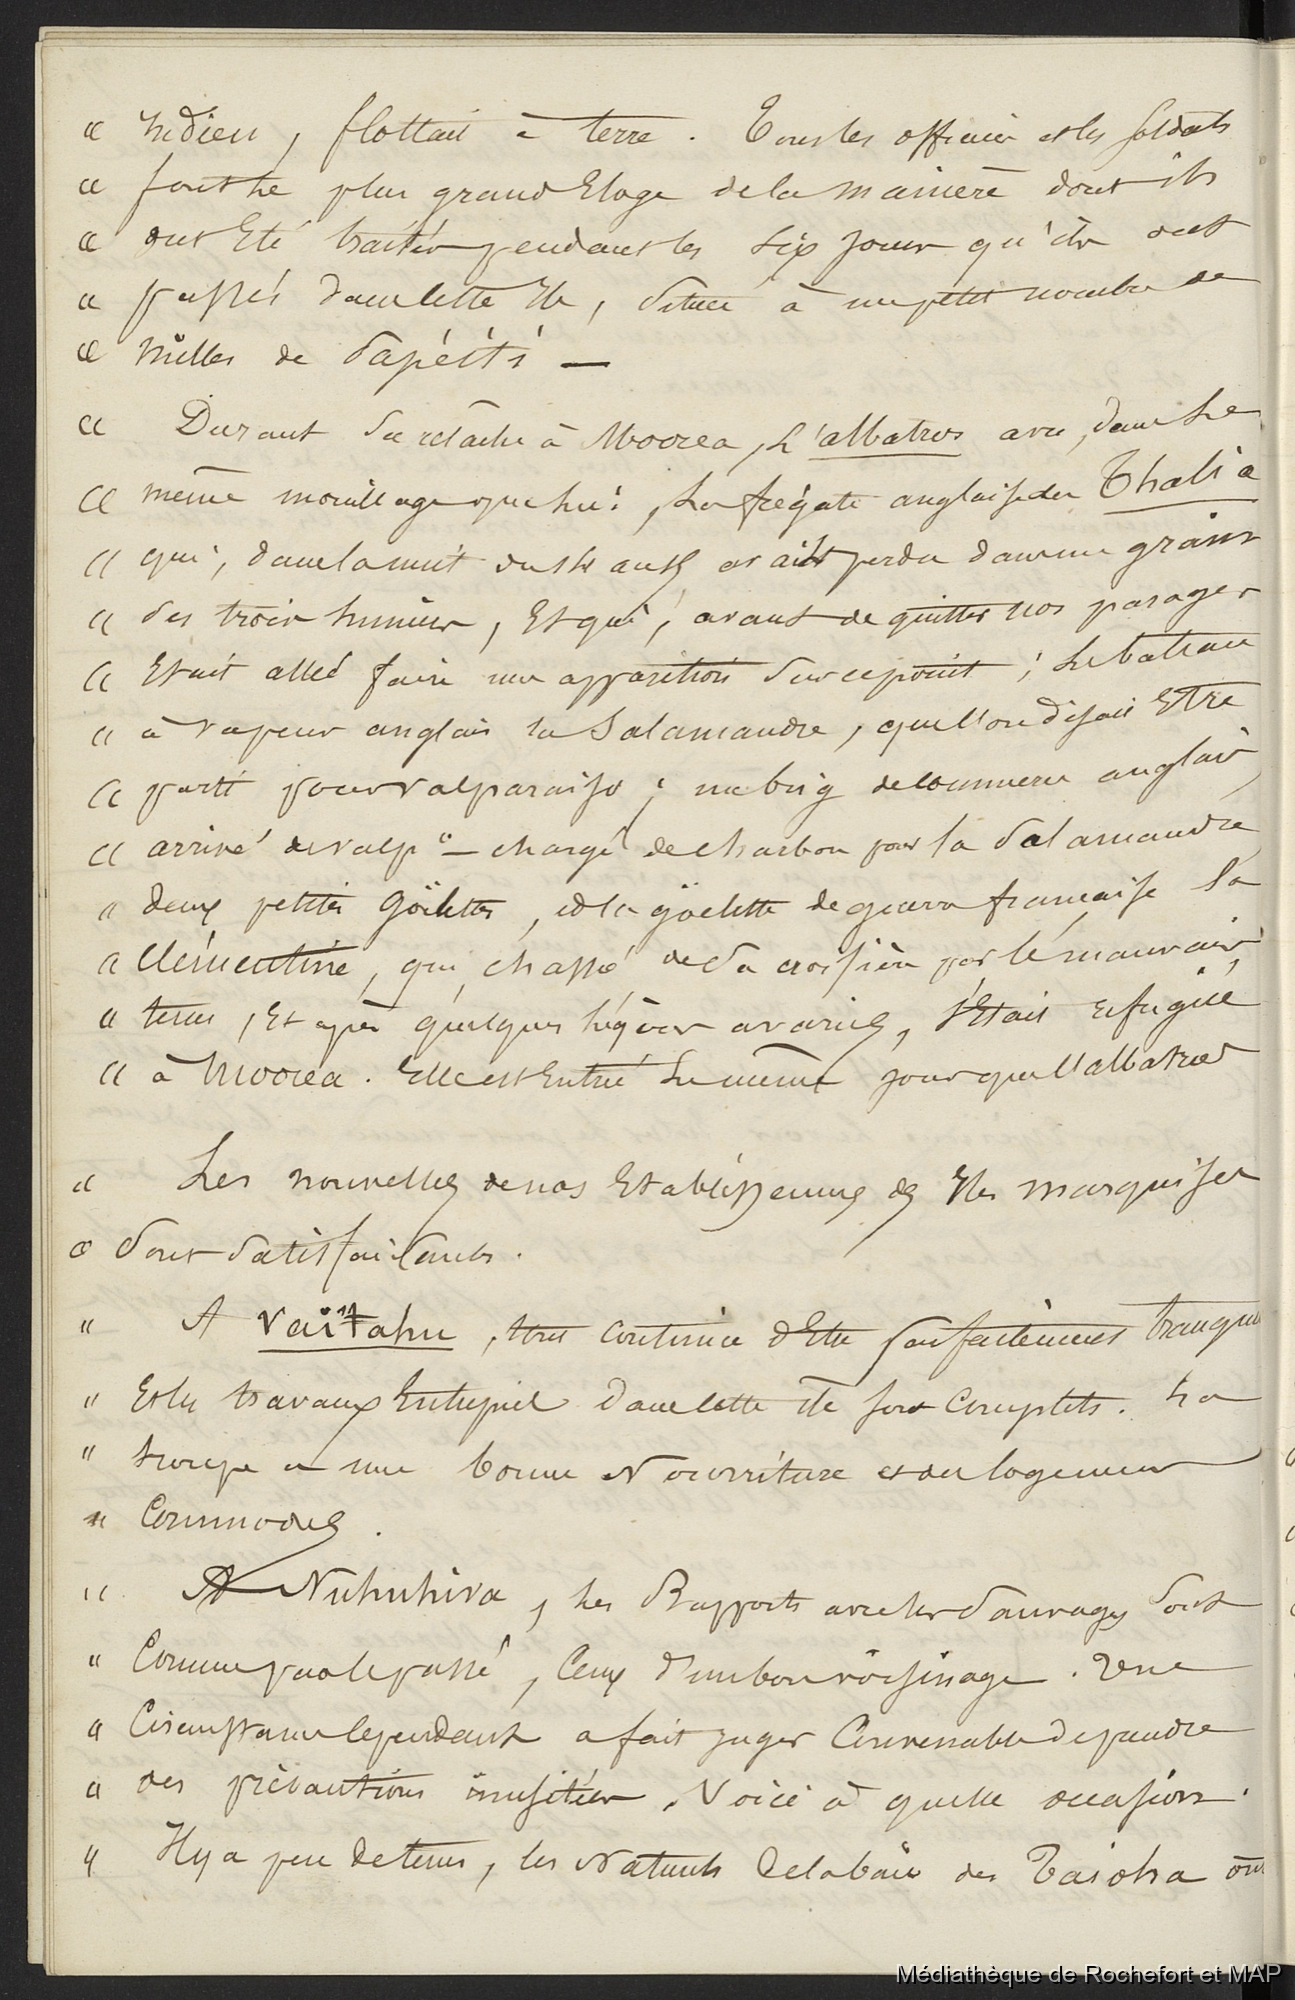 « Indien, flottait à terre. Tous les officiers et les soldats
« font le plus grand Eloge de la manière dont ils
« ont Eté traités pendant les six jours qu'ils ont
« passés dans cette Ile, située à un petit nombre de
« milles de Papéïti —
« Durant sa relâche à Moorea, L'albatros avu, dans Le
« même mouillage que lui, La frégate anglaise la Thalia
« qui, dans la nuit du avait perdu dans un grain
« ses trois huniers, Et qui, avant de quitter nos parages
« Etait allée faire une apparition sur ce point ; Le bateau
« à vapeur anglais la Salamandre, que l'on disait Etre
« parti pour valparaiso ; un brig de commerce anglais
« arrivé de valp° — chargé de charbon pour la Salamandre
« deux petites goëlettes, et la goëlette de guerre française La
« Clémentine, qui, chassé de sa croisière par le mauvais
« tems, Et après quelques légères avaries, s'Etait réfugiée
« à Moorea. Elle est Entrée Le même jour que l'albatros
« Les nouvelles de nos Etablissemens des Iles marquises
« sont satisfaisantes.
« A Vaïtahu, tout continue d'Etre parfaitement tranquille
« Et les travaux Entrepris dans cette île sont Complets. La
« troupe a une bonne Nourriture et des logemens
« Commodes.
« A Nukuhiva, Les Rapports avec les Sauvages sont
« Comme par le passé, Ceux d'un bon voisinage. Une
« Circonstance Cependant a fait juger Convenable de prendre
« des précautions inusitées. Voici à quelle occasion.
« Il y a peu de tems, les Naturels de la baie des Taioha ont
Médiathèque de Rochefort et MAP